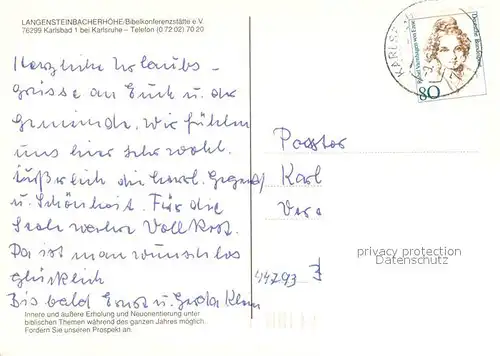 LANGENSTEINBACHERHÖHE/Bibelkonferenzstätte e.V.
76299 Karlsbad 1 bei Karlsruhe – Telefon (0 72 02) 70 20
Herzliche Urlaubs-
grüsse an Euch u. die
Gemeinde. Wir fühlen
uns hier sehr wohl.
Äußerlich die herrl. Gegend
u. Schönheit. Für die
Seele weiter Vollkost.
Da ist man wunschlos
glücklich
Bis bald Ernst u. Gerda Klein
Innere und äußere Erholung und Neuorientierung unter
biblischen Themen während des ganzen Jahres möglich.
Fordern Sie unseren Prospekt an.
KARLSB
Deutsche Bundespost
Rahel Varnhagen von Ense
80
Pastor
Karl
privacy protection
Datenschutz